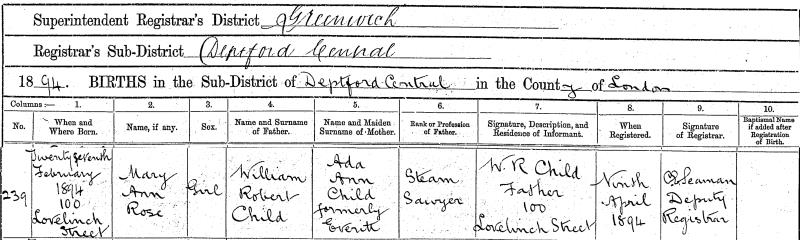 Superintendent Registrar's District Greenwich
Registrar's Sub-District Deptford Central
1894. BIRTHS in the Sub-District of Deptford Central in the County of London
Columns :— 1. 2. 3. 4. 5. 6. 7. 8. 9. 10.
No. When and Where Born. Name, if any. Sex. Name and Surname of Father. Name and Maiden Surname of Mother. Rank or Profession of Father. Signature, Description, and Residence of Informant. When Registered. Signature of Registrar. Baptismal Name if added after Registration of Birth.
239
Twenty seventh
February
1894
100
Lovelinch
Street
Mary
Ann
Rose
Girl
William
Robert
Child
Ada
Ann
Child
formerly
Everitt
Steam
Sawyer
W R Child
Father
100
Lovelinch Street
Ninth
April
1894
Seaman
Deputy
Registrar